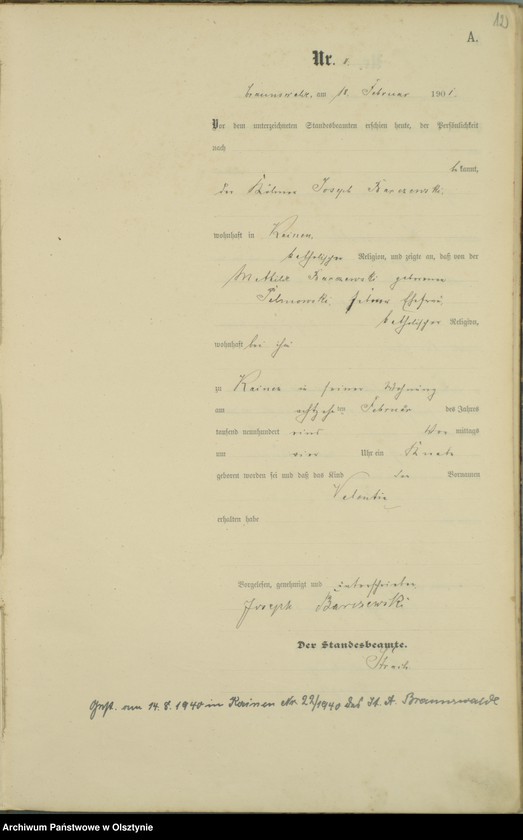 12
A.
Nr. 8.
Braunswalde, am 18. Februar 1901.
Vor dem unterzeichneten Standesbeamten erschien heute, der Persönlichkeit
nach
bekannt,
der Joseph Barczewski,
wohnhaft in Kainen,
katholischer Religion, und zeigte an, daß von der
Barczewski geborenen
seiner Ehefrau
katholischer Religion,
wohnhaft bei ihm
zu Kainen in seiner Wohnung
am achtzehnten Februar des Jahres
tausend neunhundert eins Vor mittags
um vier Uhr ein Knabe
geboren worden sei und daß das Kind den Vornamen
Valentin
erhalten habe
Vorgelesen, genehmigt und unterschrieben
Joseph Barczewski
Der Standesbeamte.
Gest. am 14.8.1940 in Kainen Nr. 22/1940 des St. A. Braunswalde
Archiwum Państwowe w Olsztynie